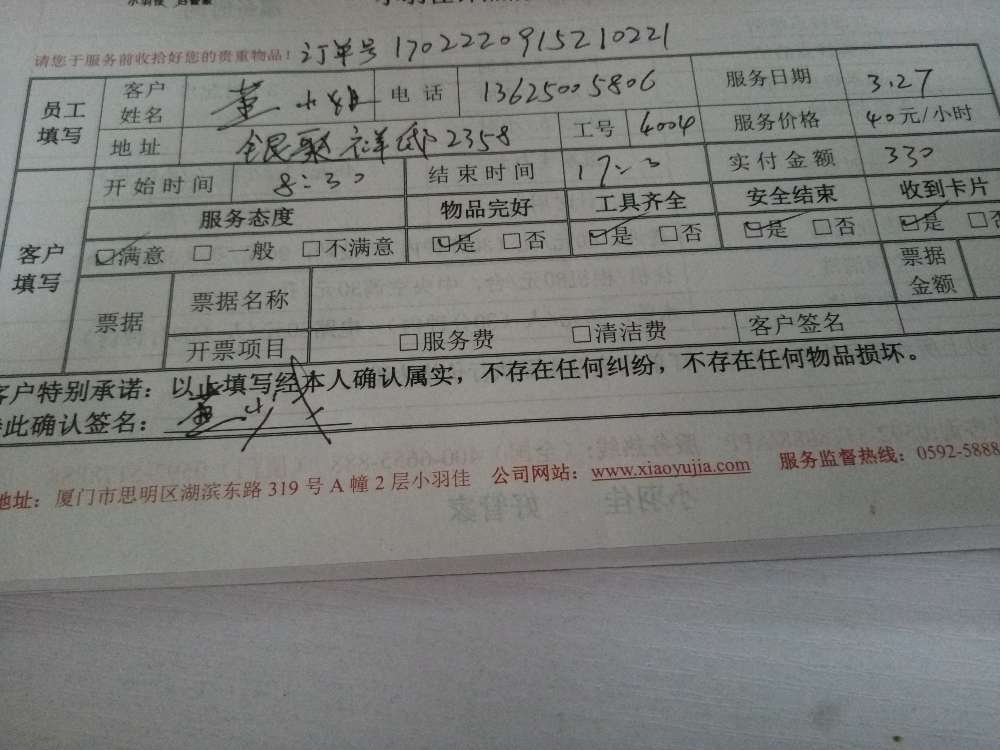 小羽佳 好管家
请您于服务前收拾好您的贵重物品! 订单号 170222091521 0221
员工填写 客户姓名 董小姐 电话 13625005806 服务日期 3.27
地址 银聚祥邸2358 工号 4004 服务价格 40元/小时
客户填写 开始时间 8:30 结束时间 17: 实付金额 330
服务态度 物品完好 工具齐全 安全结束 收到卡片
☑满意 □一般 □不满意 ☑是 □否 ☑是 □否 ☑是 □否 ☑是 □否
票据 票据名称 票据金额
开票项目 □服务费 □清洁费 客户签名
客户特别承诺:以上填写经本人确认属实,不存在任何纠纷,不存在任何物品损坏。
此确认签名: 董小
地址:厦门市思明区湖滨东路319号A幢2层小羽佳 公司网站:www.xiaoyujia.com 服务监督热线:0592-5888